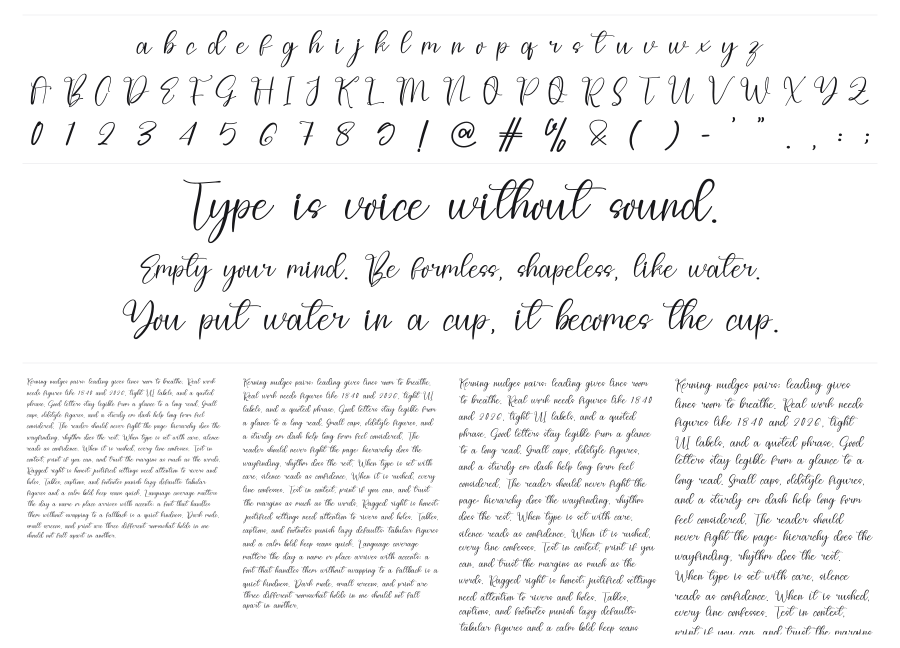 a b c d e f g h i j k l m n o p q r s t u v w x y z
A B C D E F G H I J K L M N O P Q R S T U V W X Y Z
0 1 2 3 4 5 6 7 8 9 ! @ # % & ( ) - ' " . , : ;
Type is voice without sound.
Empty your mind. Be formless, shapeless, like water.
You put water in a cup, it becomes the cup.
Kerning nudges pairs; leading gives lines room to breathe. Real work
needs figures like 18:40 and 2026, tight UI labels, and a quoted
phrase. Good letters stay legible from a glance to a long read. Small
caps, oldstyle figures, and a sturdy em dash help long form feel
considered. The reader should never fight the page: hierarchy does the
wayfinding, rhythm does the rest. When type is set with care, silence
reads as confidence. When it is rushed, every line confesses. Test in
context, print if you can, and trust the margins as much as the words.
Ragged right is honest; justified settings need attention to rivers and
holes. Tables, captions, and footnotes punish lazy defaults: tabular
figures and a calm bold keep scans quick. Language coverage matters
the day a name or place arrives with accents; a font that handles
them without swapping to a fallback is a quiet kindness. Dark mode,
small screens, and print are three different rooms;what holds in one
should not fall apart in another.
Kerning nudges pairs; leading gives lines room to breathe.
Real work needs figures like 18:40 and 2026, tight UI
labels, and a quoted phrase. Good letters stay legible from
a glance to a long read. Small caps, oldstyle figures, and
a sturdy em dash help long form feel considered. The
reader should never fight the page: hierarchy does the
wayfinding, rhythm does the rest. When type is set with
care, silence reads as confidence. When it is rushed, every
line confesses. Test in context, print if you can, and trust
the margins as much as the words. Ragged right is honest;
justified settings need attention to rivers and holes. Tables,
captions, and footnotes punish lazy defaults: tabular figures
and a calm bold keep scans quick. Language coverage
matters the day a name or place arrives with accents; a
font that handles them without swapping to a fallback is a
quiet kindness. Dark mode, small screens, and print are
three different rooms;what holds in one should not fall
apart in another.
Kerning nudges pairs; leading gives lines room
to breathe. Real work needs figures like 18:40
and 2026, tight UI labels, and a quoted
phrase. Good letters stay legible from a glance
to a long read. Small caps, oldstyle figures,
and a sturdy em dash help long form feel
considered. The reader should never fight the
page: hierarchy does the wayfinding, rhythm
does the rest. When type is set with care,
silence reads as confidence. When it is rushed,
every line confesses. Test in context, print if you
can, and trust the margins as much as the
words. Ragged right is honest; justified settings
need attention to rivers and holes. Tables,
captions, and footnotes punish lazy defaults:
tabular figures and a calm bold keep scans
Kerning nudges pairs; leading gives
lines room to breathe. Real work needs
figures like 18:40 and 2026, tight
UI labels, and a quoted phrase. Good
letters stay legible from a glance to a
long read. Small caps, oldstyle figures,
and a sturdy em dash help long form
feel considered. The reader should
never fight the page: hierarchy does the
wayfinding, rhythm does the rest.
When type is set with care, silence
reads as confidence. When it is rushed,
every line confesses. Test in context,
print if you can, and trust the margins